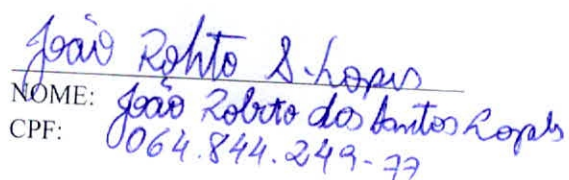 João Roberto S. Lopes
NOME: João Roberto dos Santos Lopes
CPF: 064.844.249-77